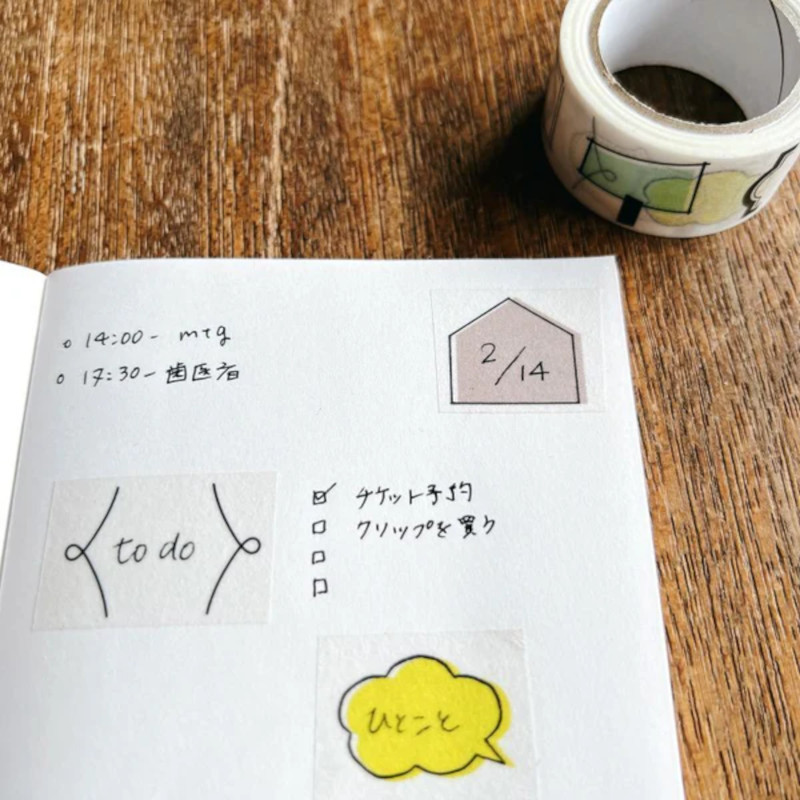 ○ 14:00- mtg
○ 17:30- 歯医者
2/14
to do
☑ チケット予約
□ クリップを買う
□
□
ひとこと